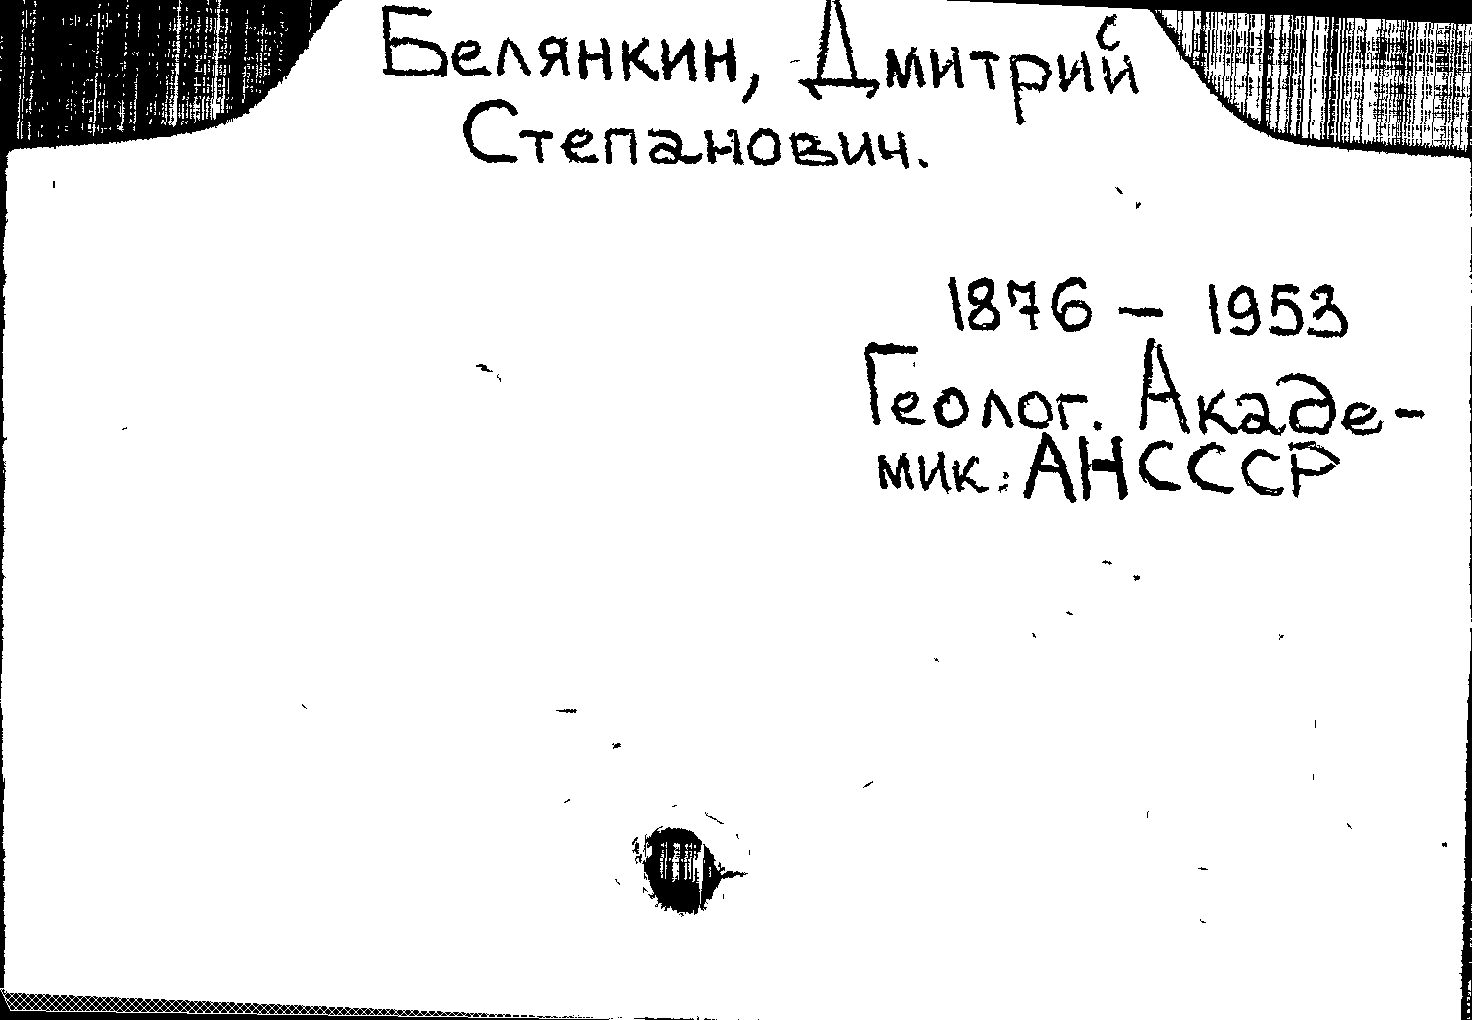 Белянкин, Дмитрий
Степанович.
1876 - 1953
Геолог. Акаде-
мик. АНСССР